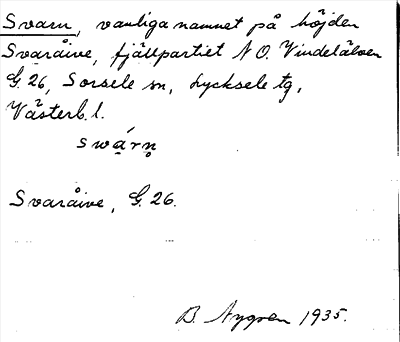 Svarn, vanliga namnet på höjden
Svaråive, fjällpartiet N O. Vindelälven
G. 26, Sorsele sn, Lycksele tg,
Västerb. l.
swárn
Svaråive, G. 26.
B. Nygren 1935.